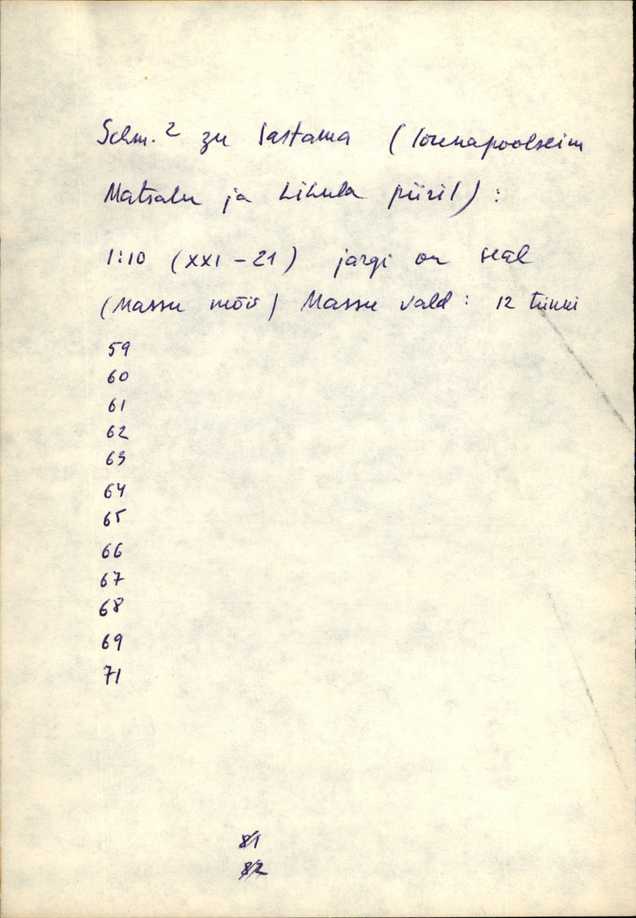 Schm.² zu Sastama (lõunapoolseim
Matsalu ja Lihula piiril) :
1:10 (XXI - 21) järgi on seal
(Massu mõis) Massu vald : 12 tükki
59
60
61
62
63
64
65
66
67
68
69
71
81
82